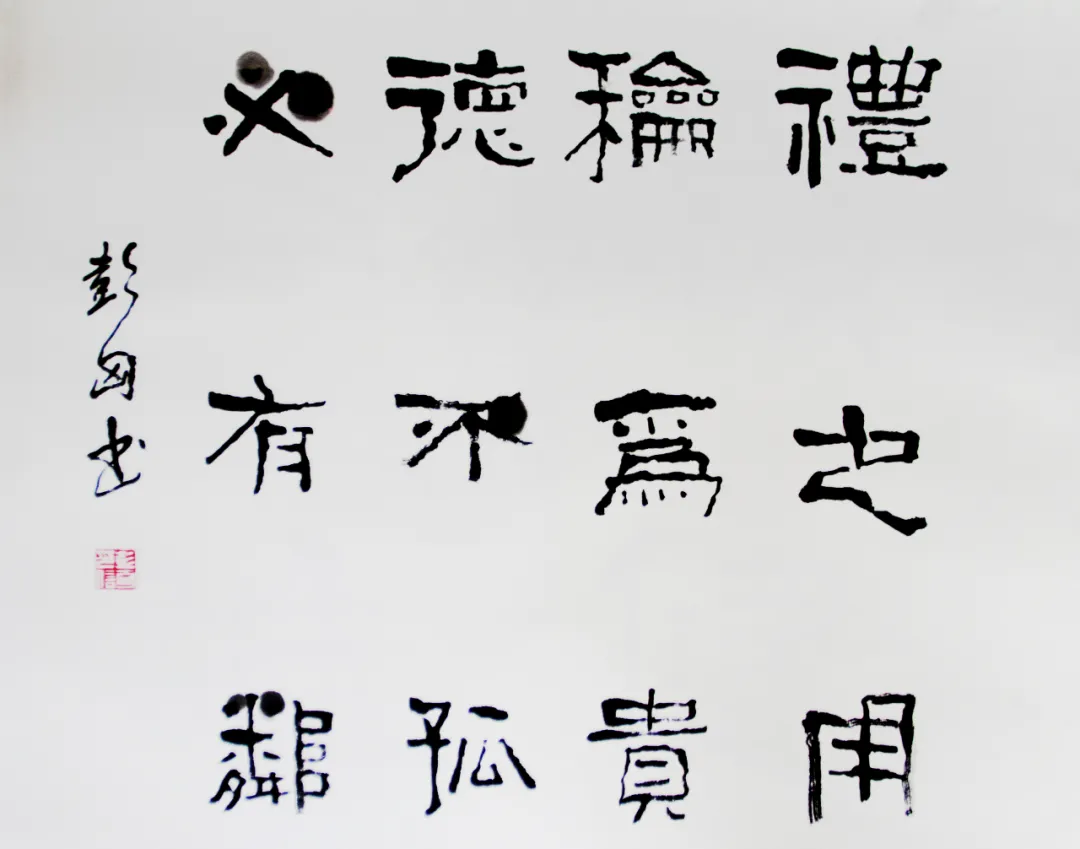 禮之用
龢爲貴
德不孤
必有鄰
彭
书